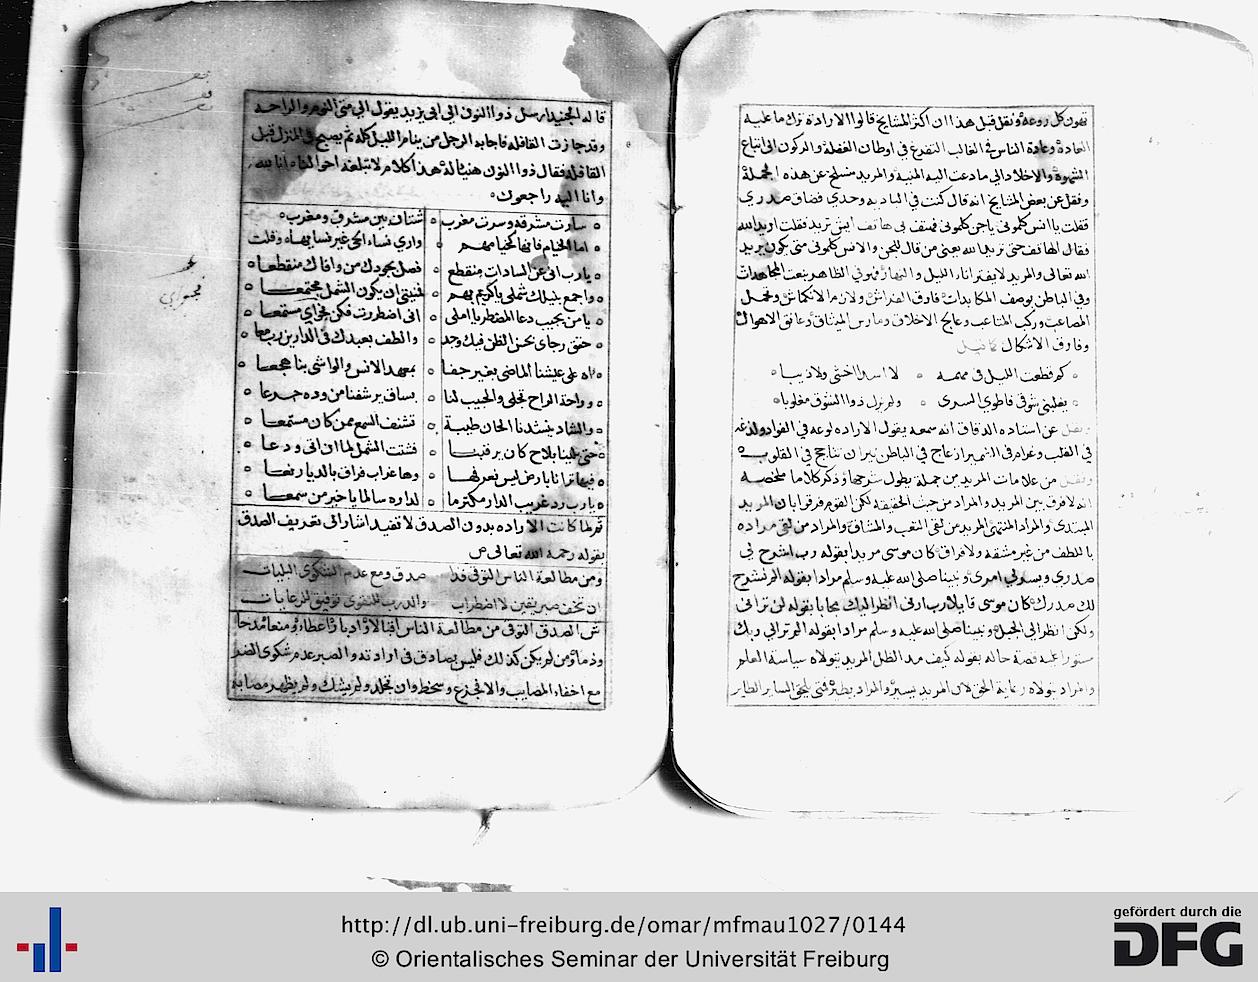 تهون كل روعة ونقل قبل هذا ان اكثر المشايخ قالوا الارادة ترك ما عليه
العادة وعادة الناس في الغالب التعرج في اوطان الغفلة والركون الى اتباع
الشهوة والاخلاد الى ما دعت اليه المنية والمريد منسلخ عن هذه الجملة
ونقل عن بعض المشايخ انه قال كنت في البادية وحدي فضاق صدري
فقلت يا انس كلموني يا جن كلموني فهتف بي هاتف ايش تريد فقلت اريد الله
فقال الهاتف متى تريد الله يعني من قال للجن والانس كلموني متى يكون يريد
الله تعالى والمريد لا يفتر اناء الليل والنهار فهو في الظاهر بنعت المجاهدات
وفي الباطن بوصف المكابدات فارق الفراش ولازم الانكماش وتحمل
المصاعب وركب المتاعب وعالج الاخلاق ومارس الميثاق وعانق الاهوال
وفارق الاشكال كما قيل
كم قطعت الليل في مهمه لا اسدا اخشى ولا ذيبا
يغلبني شوقي فاطوي السرى ولم يزل ذو الشوق مغلوبا
عن استاده الدقاق انه سمعه يقول الارادة لوعة في الفؤاد ولدغة
في القلب وغرام في الضمير انزعاج في الباطن نيران تتاجج في القلوب
من علامات المريدين جملة يطول شرحها وذكر كلاما ملخصه
انه لا فرق بين المريد والمراد من حيث الحقيقة لكن القوم فرقوا بان المريد
المبتدي والمراد المنتهي المريد من لقي التعب والمشاق والمراد من لقي مراده
باللطف من غير مشقة ولا فراق كان موسى مريدا بقوله رب اشرح لي
صدري ويسر لي امري ونبينا صلى الله عليه وسلم مرادا بقوله الم نشرح
لك صدرك كان موسى قايلا رب ارني انظر اليك مجابا بقوله لن تراني
ولكن انظر الى الجبل ونبينا صلى الله عليه وسلم مرادا بقوله الم تر الى ربك
مستورا عليه قصة حاله بقوله كيف مد الظل المريد يتولاه سياسة العلم
والمراد يتولاه رعاية الحق لان المريد يسير والمراد يطير فمتى يلحق الساير الطاير
قاله الجنيد ارسل ذوا النون الى ابي يزيد يقول الى متى النوم والراحة
وقد جازت القافلة فاجابه الرجل من ينام الليل كله ثم يصبح في المنزل قبل
القافلة فقال ذوا النون هنيئا له هذا كلام لا تبلغه احوالنا انا لله
وانا اليه راجعون
سارت مشرقة وسرت مغرب شتان بين مشرق ومغرب
اما الخيام فانها كخيامهم وارى نساء الحي غير نسايها وقلت
يا رب اني عن السادات منقطع فصل بجودك من وافاك منقطعا
واجمع بنيلك شملي يا كريم بهم ان يكون الشمل مجتمعا
يا من يجيب دعا المضطر يا املي اني اضطررت فكن مستمعا
حقق رجاي بحسن الظن فيك وجد والطف بعبدك في الدارين رب معا
اه على عيشنا الماضي بغير جفا بمعهد الانس والواشي بنا هجعا
وراحة الراح تجلى والحبيب لنا بساق يرشفنا من وده جرعا
والشاد ينشدنا الحان طيبة تشنف السمع ممن كان مستمعا
فشتت الشمل لما ان اتى ودعا
نعرفها وها غراب فراق بالديار نعا
يا رب رد غريب الدار مكترما لداره سالما يا خير من سمعا
ثم لما كانت الارادة بدون الصدق لا تفيد اشار الى تعريف الصدق
بقوله رحمه الله تعالى ص
ومن مطالعة الناس التوقي فذا صدق ومع عدم الشكوى البليات
والدرب للتقوى توفيق
ش الصدق التوقي من مطالعة الناس
وذما ومن لم يكن كذلك فليس بصادق في ارادته والصبر عدم شكوى الضر
مع اخفاء المصايب والا فجزع وسخط وان تجلد ولم يشك ولم يظهر مصابه
http://dl.ub.uni-freiburg.de/omar/mfmau1027/0144
© Orientalisches Seminar der Universität Freiburg
gefördert durch die
DFG